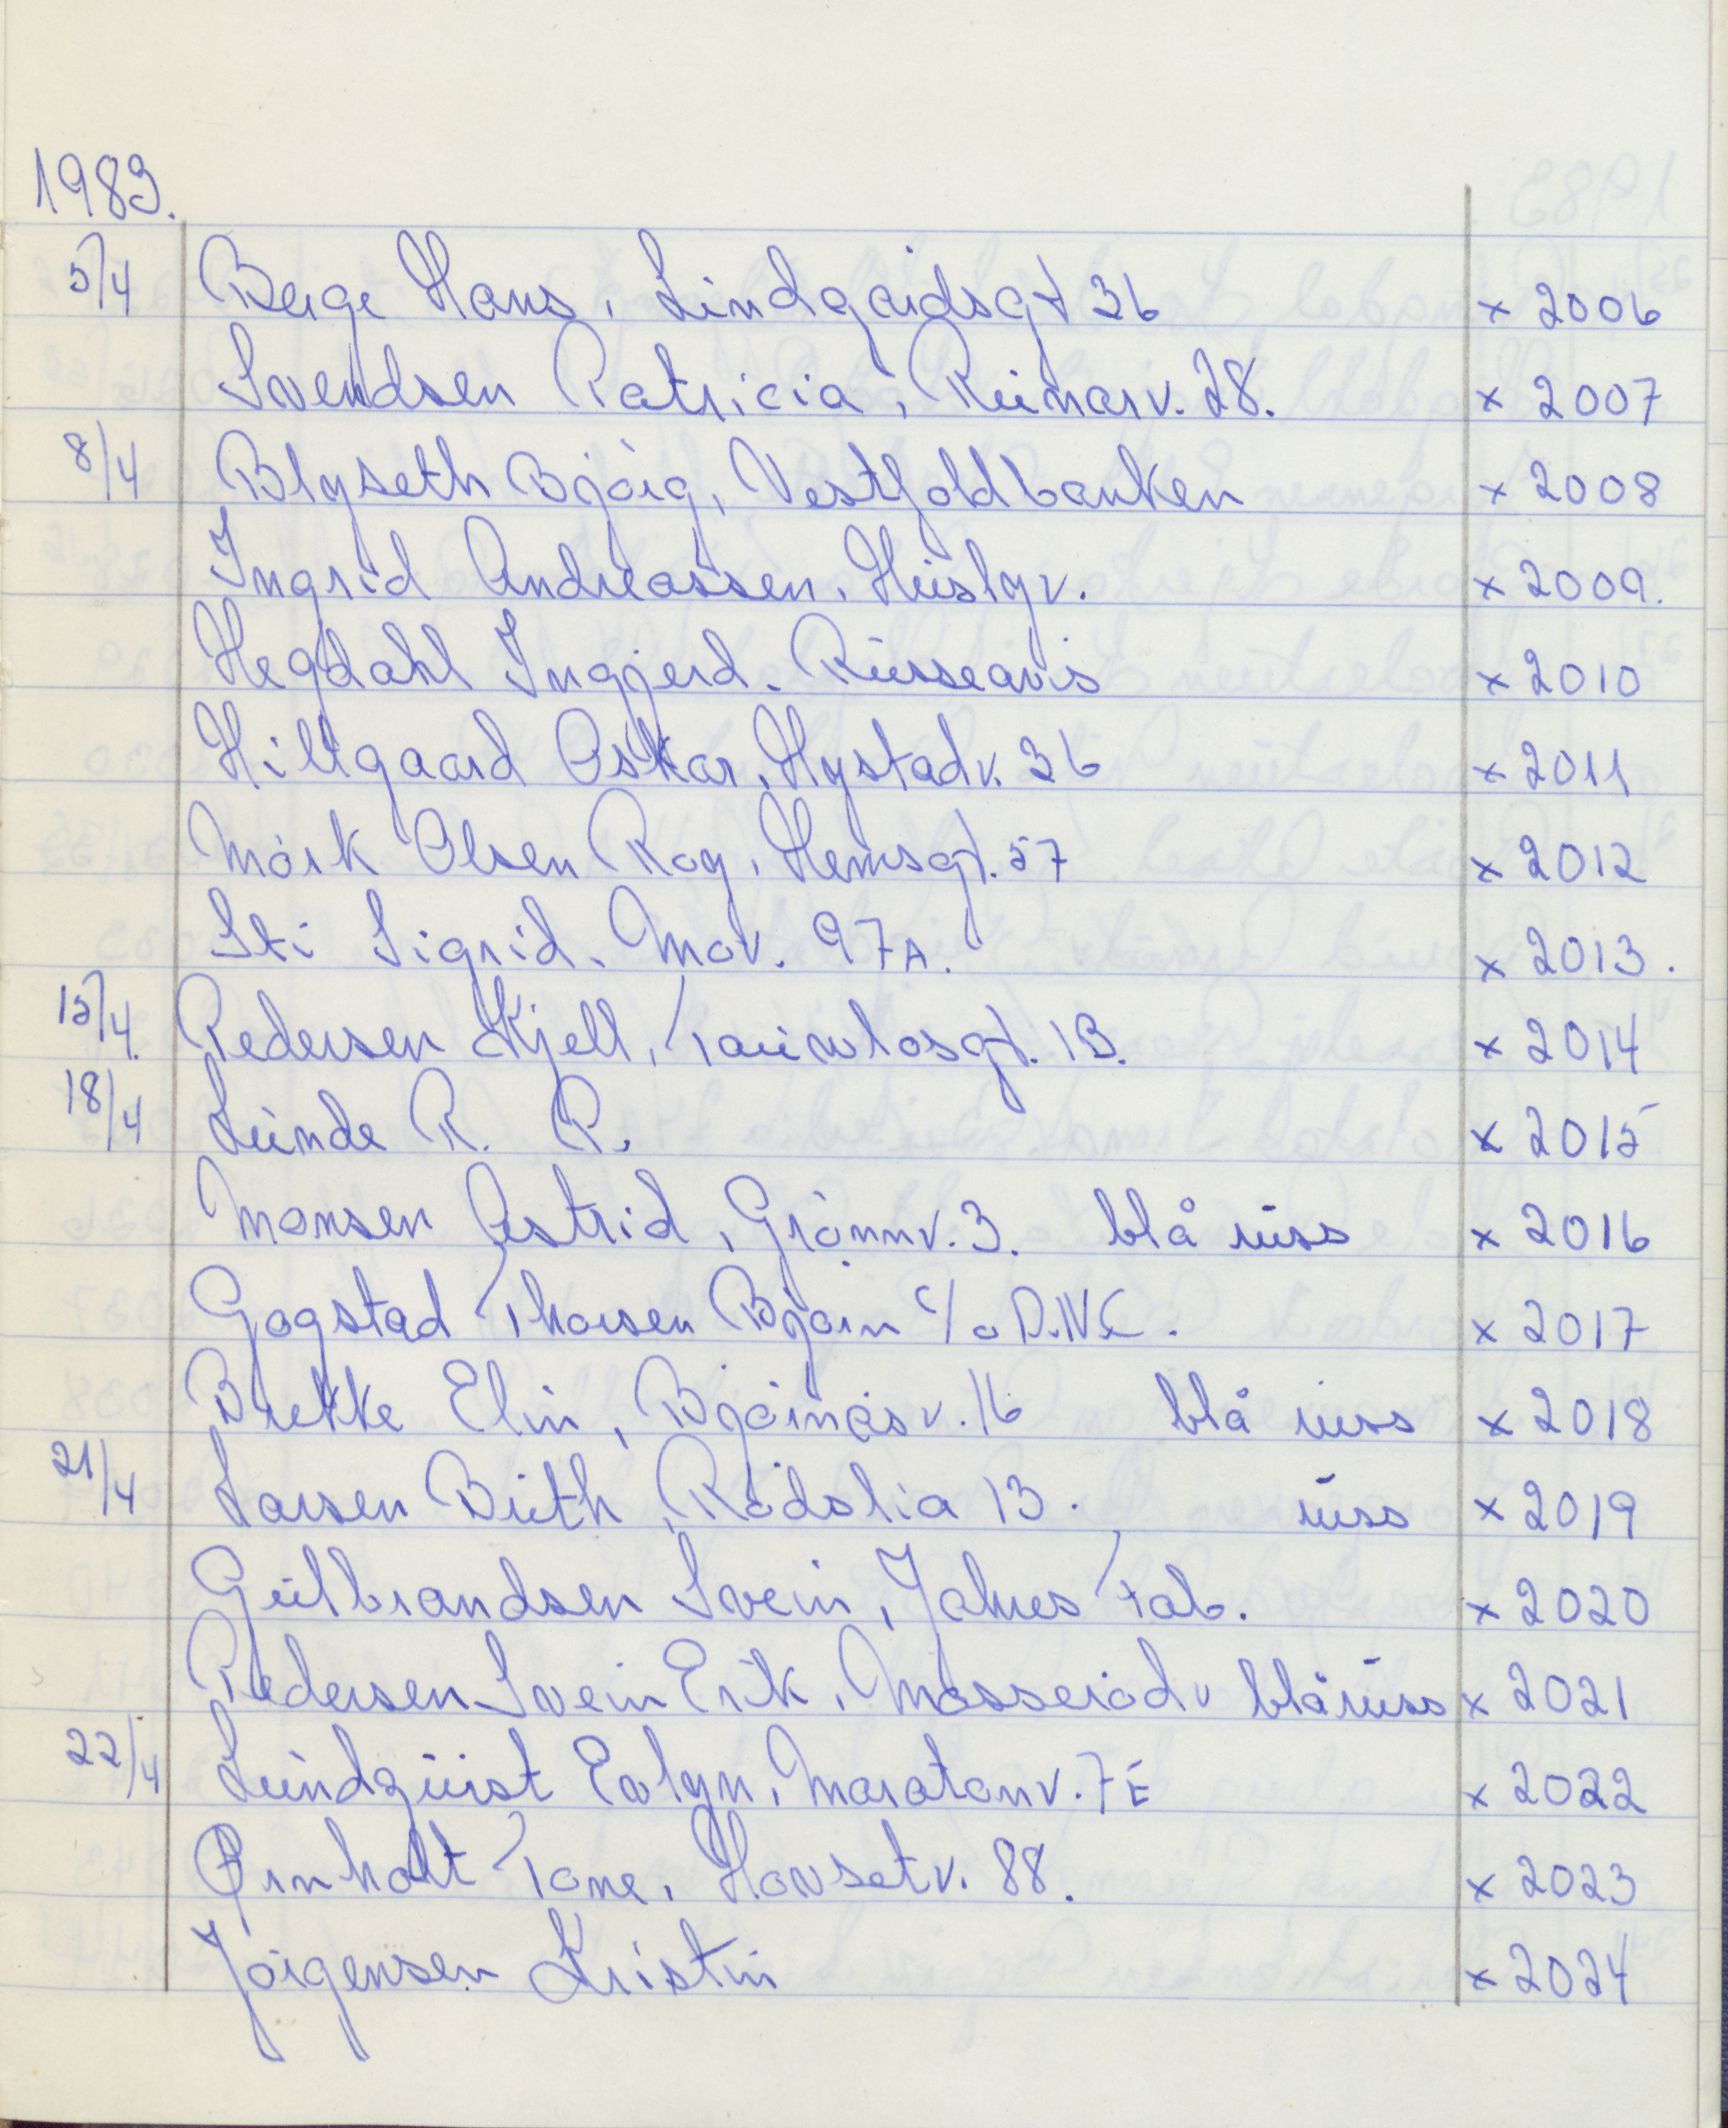 1983.
5/4 Berge Hans, Lindgårdsgt 36 x 2006
Svendsen Patricia, Runarv. 28. x 2007
8/4 Blyseth Bjørg, Vestfoldbanken x 2008
Ingrid Andreassen, Huslyv. x 2009.
Hegdahl Ingjerd. Russeavis x 2010
Hiltgaard Oskar, Hystadv. 36 x 2011
Mørk Olsen Roy, Hemsgt. 57 x 2012
Sti Sigrid. Mov. 97A. x 2013.
15/4. Pedersen Kjell, Taranrødsgt. 1B. x 2014
18/4 Lunde R. P. x 2015
Monsen Astrid, Grønnv. 3. blå russ x 2016
Gogstad Thorsen Bjørn c/o D.N.C. x 2017
Brekke Elin, Bjørnåsv. 16 blå russ x 2018
21/4 Larsen Bruth, Rødslia 13. russ x 2019
Gulbrandsen Svein, Jahres Fab. x 2020
Pedersen Svein Erik, Mosserødv blåruss x 2021
22/4 Lundquist Evlyn, Maratonv. 7E x 2022
Ørnholt Tone, Hovsetv. 88. x 2023
Jørgensen Kristin x 2024